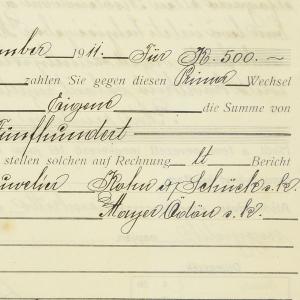 ember 1911. Für K. 500.~
zahlen Sie gegen diesen Prima Wechsel
Eigene die Summe von
Fünfhundert
stellen solchen auf Rechnung lt Bericht
uwelier Kohn & Schück s.k.
Mayer Ödön s.k.